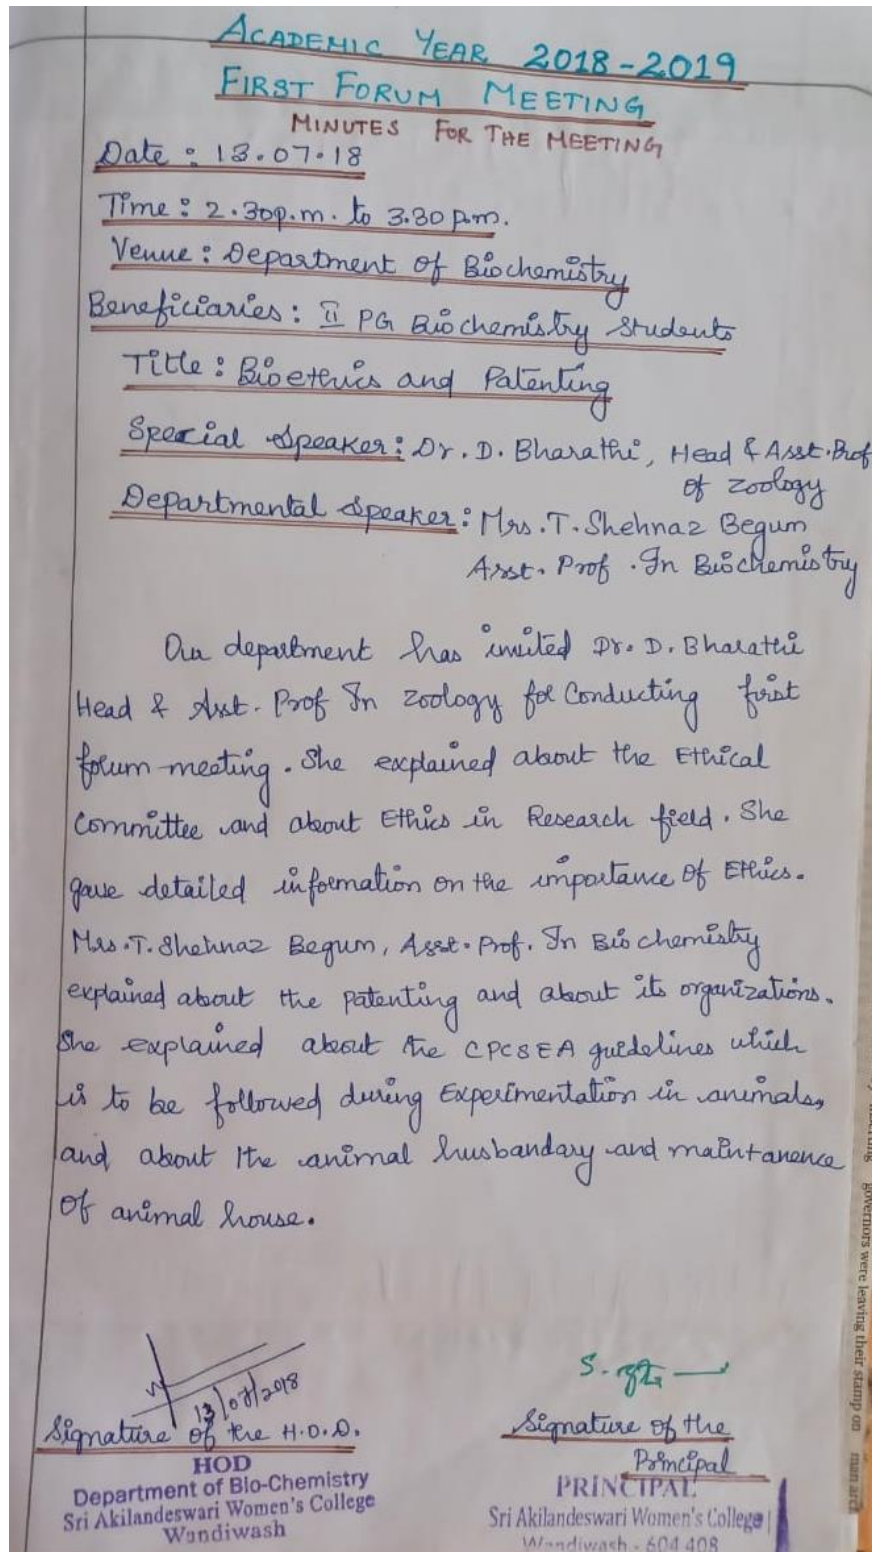 ACADEMIC YEAR 2018-2019
FIRST FORUM MEETING
MINUTES FOR THE MEETING
Date : 13.07.18
Time : 2.30p.m. to 3.30 p.m.
Venue : Department of Biochemistry
Beneficiaries : II PG Biochemistry Students
Title : Bioethics and Patenting
Special Speaker : Dr. D. Bharathi, Head & Asst. Prof
of Zoology
Departmental Speaker : Mrs. T. Shehnaz Begum
Asst. Prof. In Biochemistry
Our department has invited Dr. D. Bharathi
Head & Asst. Prof In Zoology for Conducting first
forum meeting. She explained about the Ethical
Committee and about Ethics in Research field. She
gave detailed information on the importance of Ethics.
Mrs. T. Shehnaz Begum, Asst. Prof. In Biochemistry
explained about the patenting and about its organizations.
She explained about the CPCSEA guidelines which
is to be followed during Experimentation in animals,
and about the animal husbandary and maintanence
of animal house.
S.
Signature of the H.O.D.
HOD
Department of Bio-Chemistry
Sri Akilandeswari Women's College
Wandiwash
Signature of the
Principal
PRINCIPAL
Sri Akilandeswari Women's College
Wandiwash - 604 408
governors were leaving their stamp on
man arch